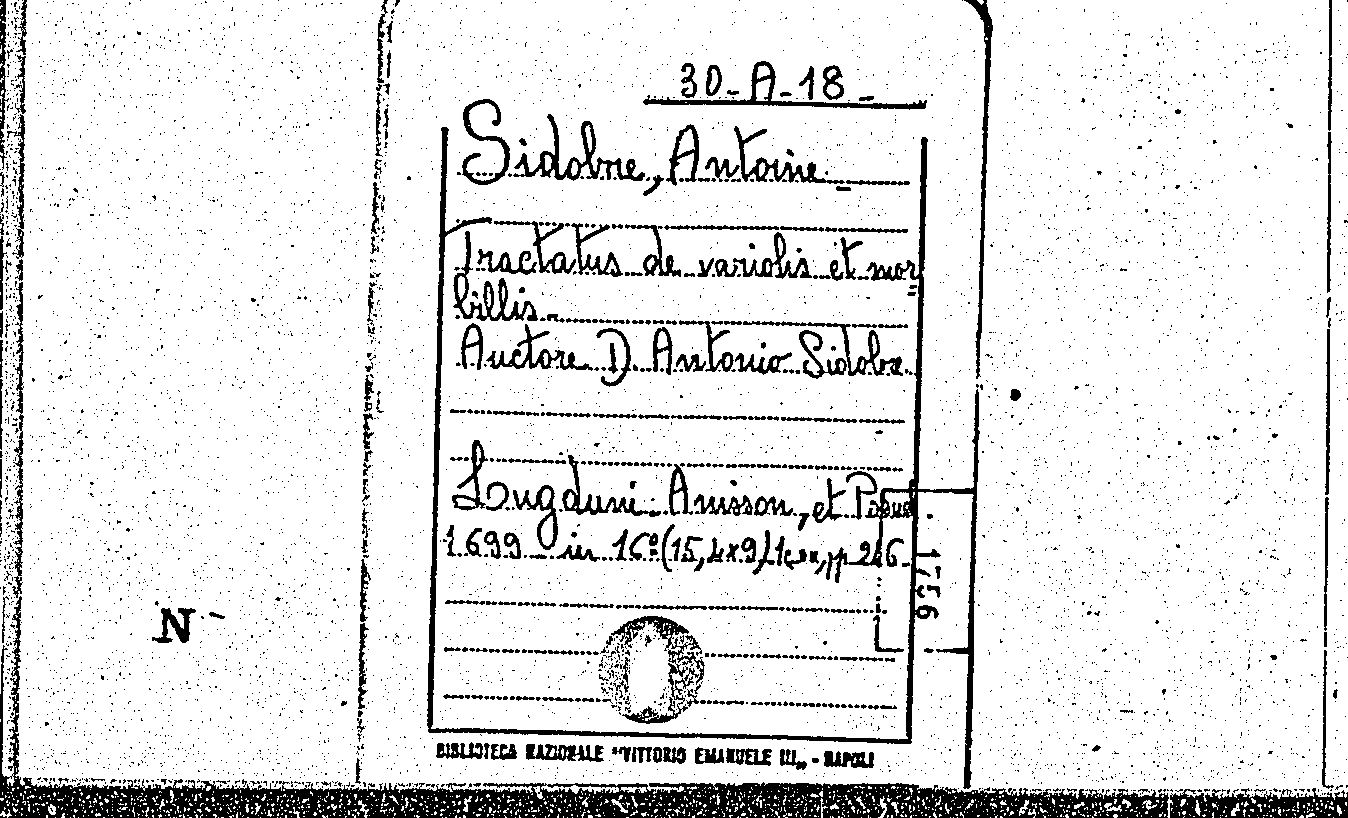 30-A-18-
Sidobre, Antoine.-
Tractatus de variolis et mor=
billis.-
Auctore D. Antonio Sidobre.
Lugduni. Anisson, et Posuel.
1699 in 16º (15,4x9) pp 246.
1756
N-
BIBLIOTECA NAZIONALE "VITTORIO EMANUELE III" - NAPOLI